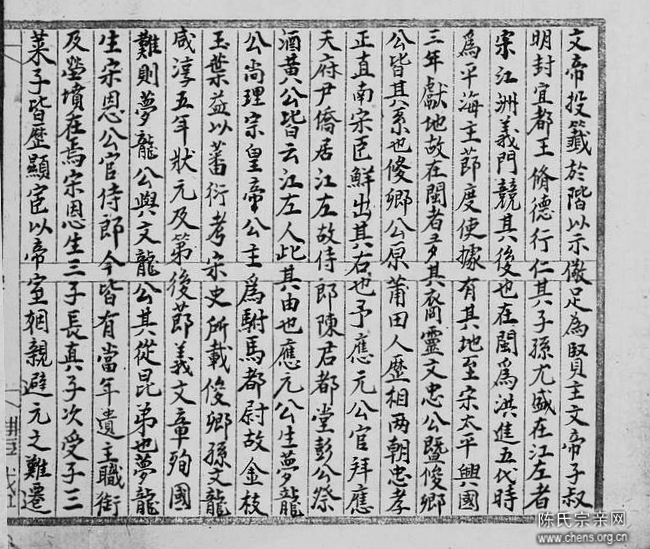 文帝投籤於階以示儆足為賢主文帝子叔
明封宜都王脩德行仁其子孫尤盛在江左者
宗江洲義門競其後也在閩爲洪進五代時
爲平海笁莭度使據有其地至宋太平興國
三年獻地故在閩者多其裔靈文忠公暨俊卿
公皆其系也俊卿公原莆田人歷相兩朝忠孝
正直南宋臣鮮出其右也予應元公官拜應
天府尹僑居江左故侍郎陳君都堂彭公祭
酒黄公皆云江左人此其由也應元公生夢龍
公尚理宗皇帝公主爲駙馬都尉故金枝
玉葉益以蕃衍考宗史所載俊卿孫文龍
咸淳五年狀元及第後莭義文章殉國
難則夢龍公與文龍公其從昆弟也夢龍
生宗恩公官侍郎今皆有當年遺主職銜
及塋墳在焉宗恩生三子長真子次受子三
菜子皆歷顯宦以帝室姻親避元之難遷
陈氏宗亲网
www.chens.org.cn